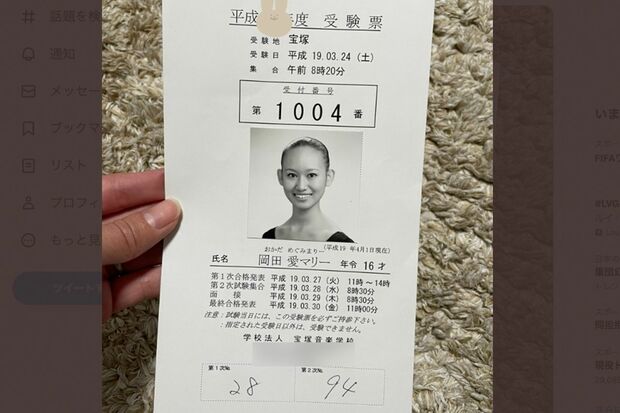 平成 年度 受験票
受験地 宝塚
受験日 平成 19.03.24 (土)
集合 午前 8時20分
受付番号
第 1004 番
おかだ めぐみまりー (平成19 年4月1日現在)
氏名 岡田 愛マリー 年令 16 才
第1次合格発表 平成 19.03.27 (火) 11時~14時
第2次試験集合 平成 19.03.28 (水) 8時30分
面接 平成 19.03.29 (木) 8時30分
最終合格発表 平成 19.03.30 (金) 11時00分
注意:試験当日には、この受験票を必ずご持参下さい。
:指定された受験日以外は、受験できません。
学校法人 宝塚音楽学校
第1次№ 第2次№
28 94
話題を検
通知
メッセー
ブックマ
リスト
プロフィ
もっと見
ツイート
いま
スポー
FIFA
#LVG
ルイ
日本の
集団
トレン
スポー
スポー
現役